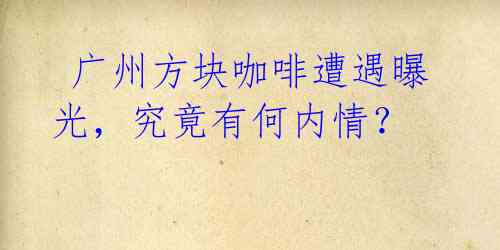 广州方块咖啡遭遇曝
光，究竟有何内情？